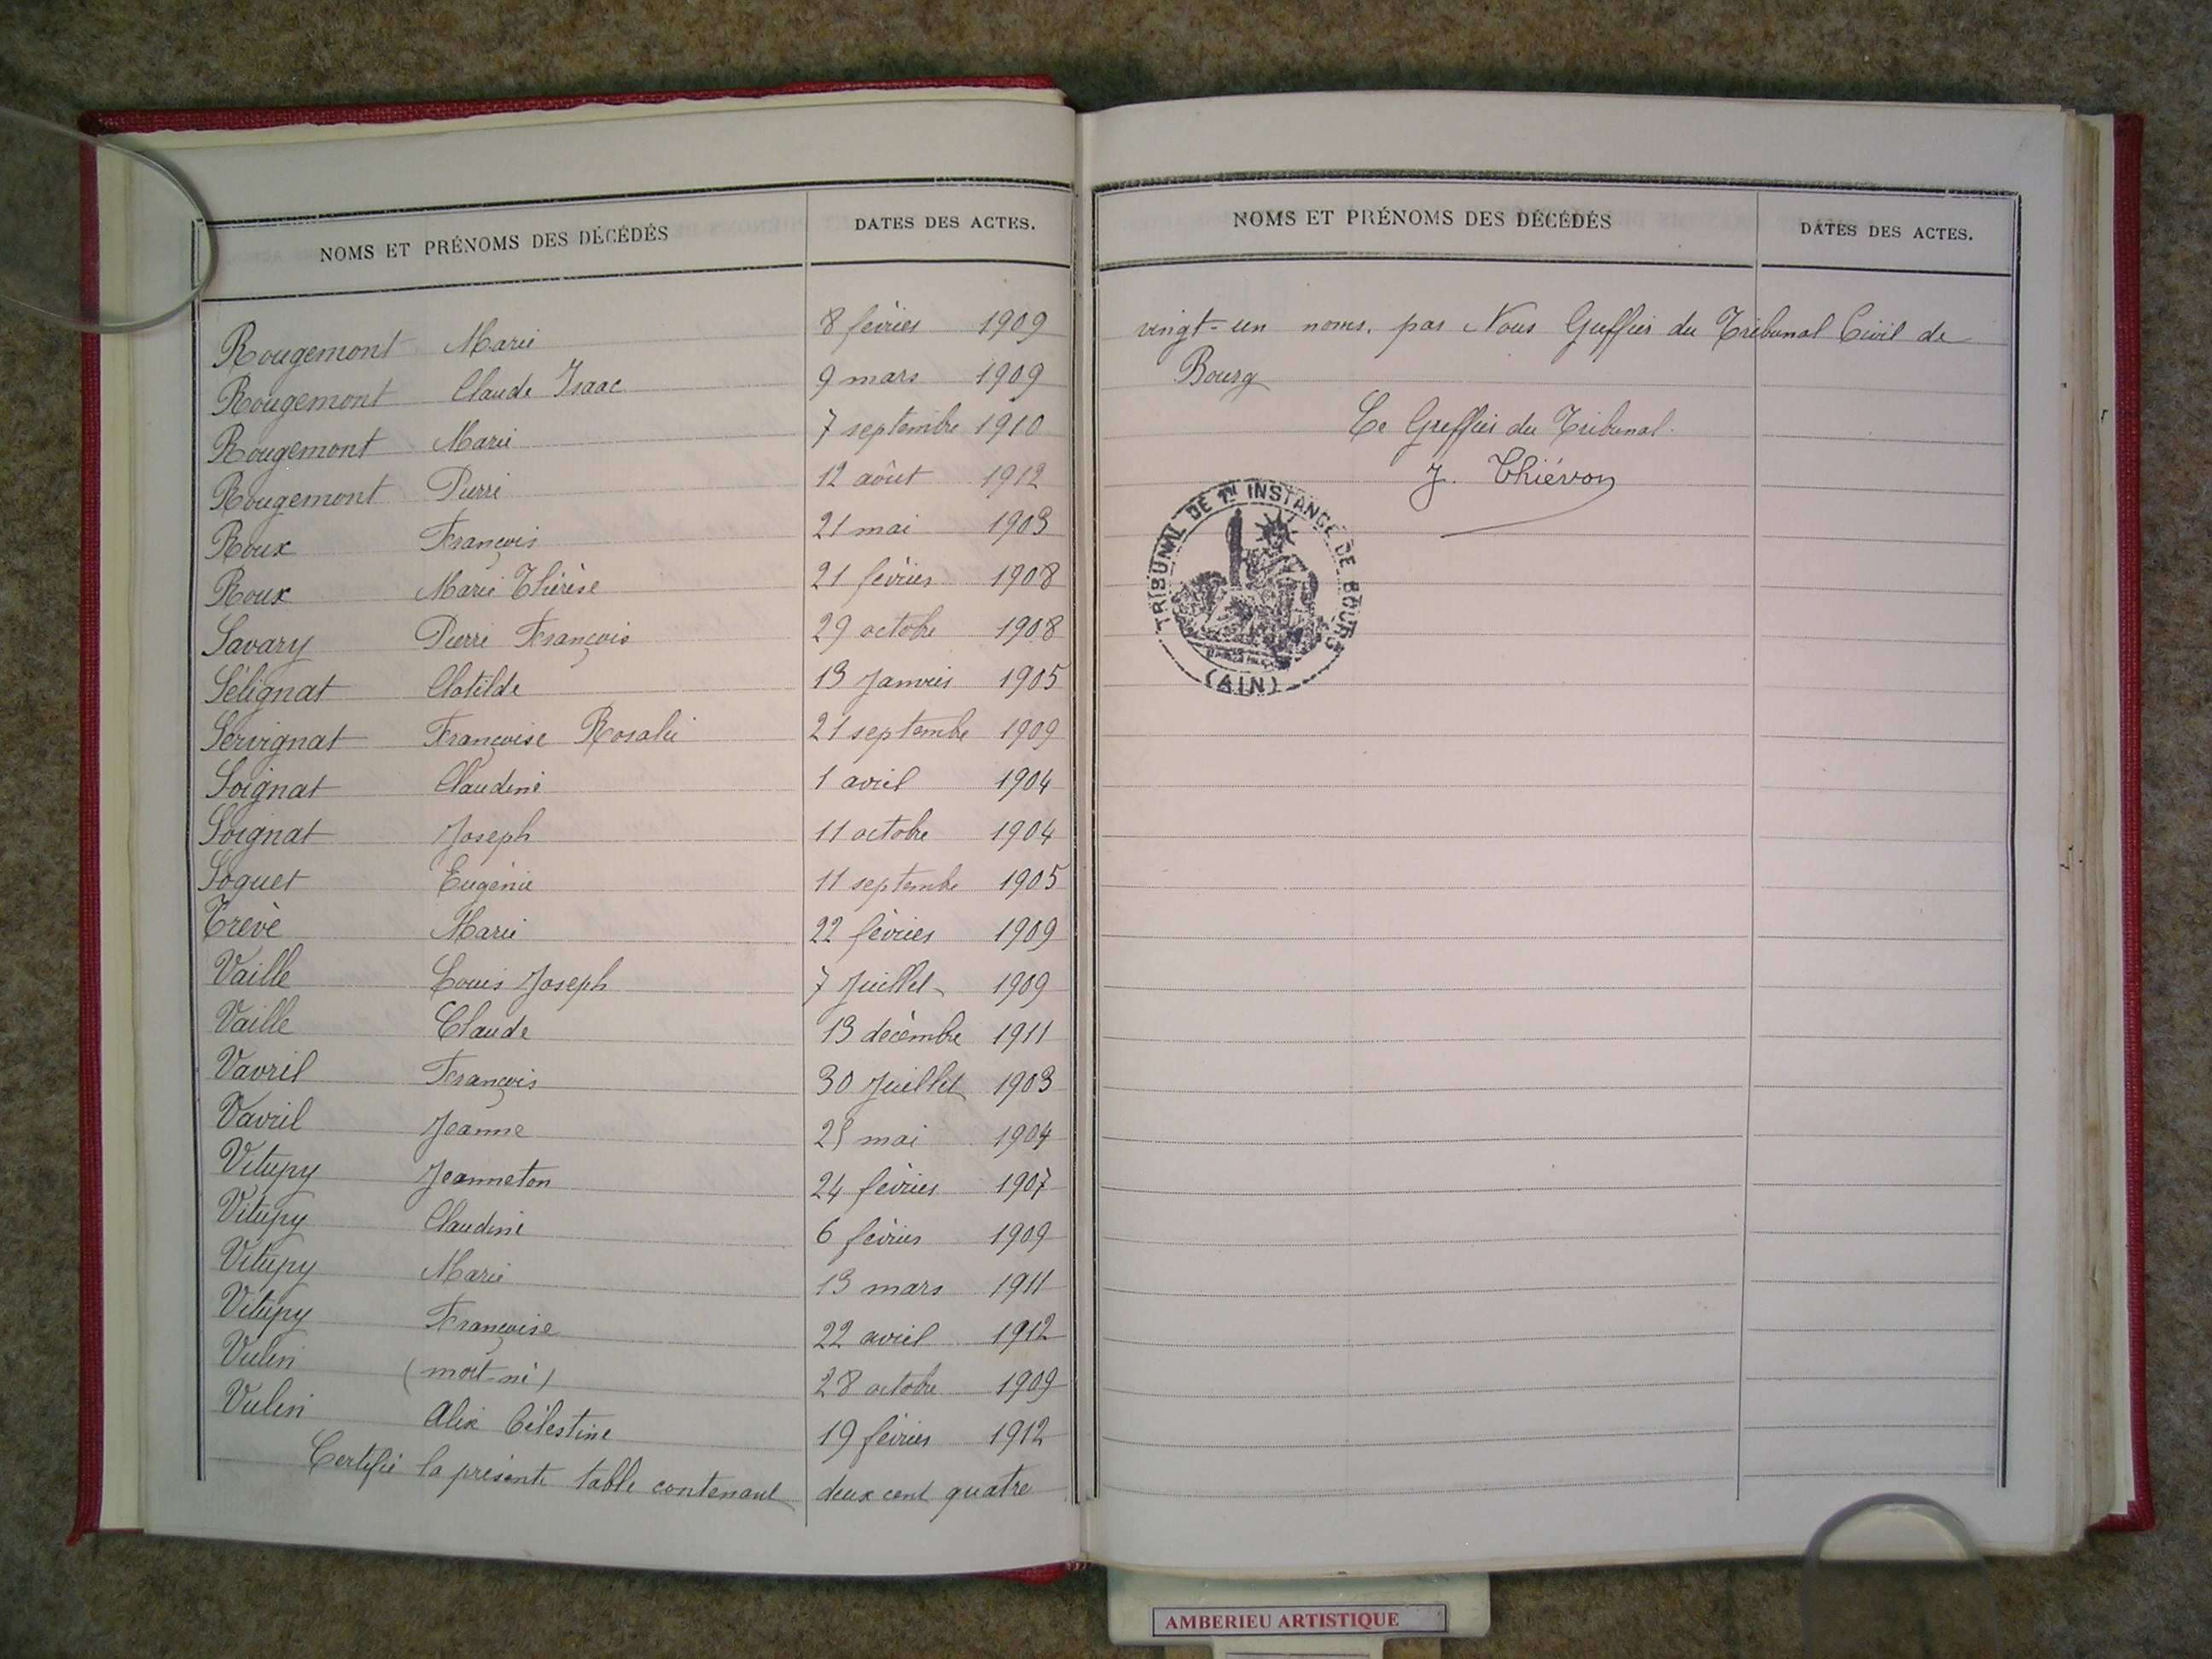 NOMS ET PRÉNOMS DES DÉCÉDÉS DATES DES ACTES.
Rougemont Marie 8 février 1909
Rougemont Claude Isaac 9 mars 1909
Rougemont Marie 7 septembre 1910
Rougemont Pierre 12 août 1912
Roux François 21 mai 1903
Roux Marie Thérèse 21 février 1908
Savary Pierre François 29 octobre 1908
Sélignat Clotilde 13 Janvier 1905
Servignat Françoise Rosalie 21 septembre 1909
Soignat Claudine 1 avril 1904
Soignat Joseph 11 octobre 1904
Soquet Eugénie 11 septembre 1905
Trève Marie 22 février 1909
Vaille Louis Joseph 7 Juillet 1909
Vaille Claude 13 décembre 1911
Vavril François 30 Juillet 1903
Vavril Jeanne mai 1904
Vitupy Jeanneton 24 février 1907
Vitupy Claudine 6 février 1909
Vitupy Marie 13 mars 1911
Vitupy Françoise 22 avril 1912
Vulin (mort-né) 28 octobre 1909
Vulin Alix Célestine 19 février 1912
Certifié la présente table contenant deux cent quatre
NOMS ET PRÉNOMS DES DÉCÉDÉS DATES DES ACTES.
vingt-un noms, par Nous Greffier du Tribunal Civil de
Bourg
Le Greffier du Tribunal.
J. Thiévon
TRIBUNAL DE 1RE INSTANCE DE BOURG
(AIN)
AMBERIEU ARTISTIQUE